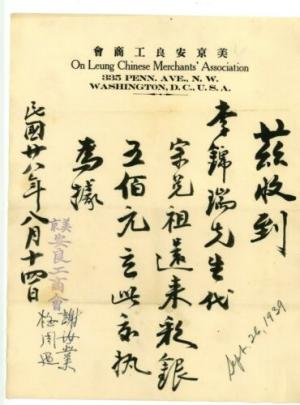 美京安良工商會
On Leung Chinese Merchants' Association
335 PENN. AVE., N. W.
WASHINGTON, D. C., U. S. A.
茲收到
李錦瑞先生代
宗兄祖遠來彩銀
五佰元立此永执
為據
民國廿八年八月十四日
美京安良工商會
謝汝業
梅周
Sept. 26, 1939